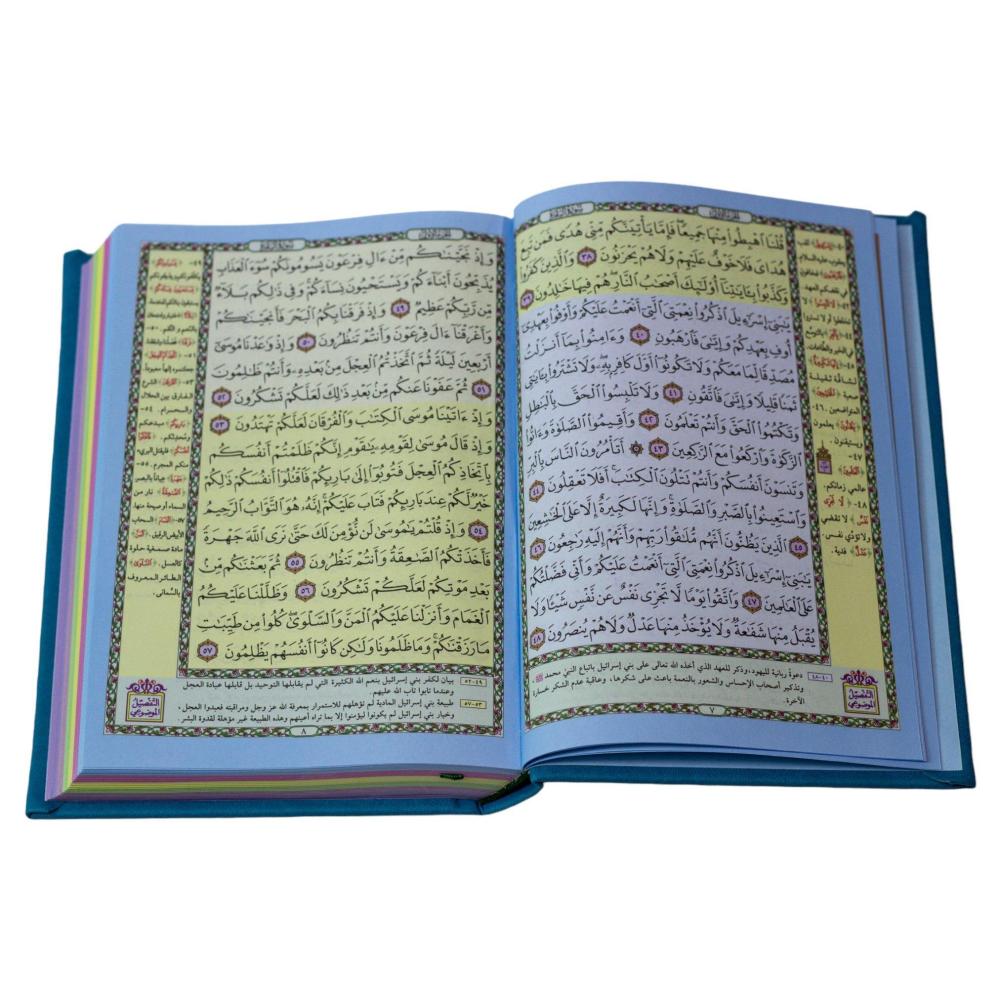 سورة البقرة
قُلْنَا ٱهْبِطُوا۟ مِنْهَا جَمِيعًا ۖ فَإِمَّا يَأْتِيَنَّكُم مِّنِّى هُدًى فَمَن تَبِعَ
هُدَاىَ فَلَا خَوْفٌ عَلَيْهِمْ وَلَا هُمْ يَحْزَنُونَ ٣٨ وَٱلَّذِينَ كَفَرُوا۟
وَكَذَّبُوا۟ بِـَٔايَـٰتِنَآ أُو۟لَـٰٓئِكَ أَصْحَـٰبُ ٱلنَّارِ ۖ هُمْ فِيهَا خَـٰلِدُونَ ٣٩
يَـٰبَنِىٓ إِسْرَٰٓءِيلَ ٱذْكُرُوا۟ نِعْمَتِىَ ٱلَّتِىٓ أَنْعَمْتُ عَلَيْكُمْ وَأَوْفُوا۟ بِعَهْدِىٓ
أُوفِ بِعَهْدِكُمْ وَإِيَّـٰىَ فَٱرْهَبُونِ ٤٠ وَءَامِنُوا۟ بِمَآ أَنزَلْتُ
مُصَدِّقًا لِّمَا مَعَكُمْ وَلَا تَكُونُوٓا۟ أَوَّلَ كَافِرٍۭ بِهِۦ ۖ وَلَا تَشْتَرُوا۟ بِـَٔايَـٰتِى
ثَمَنًا قَلِيلًا وَإِيَّـٰىَ فَٱتَّقُونِ ٤١ وَلَا تَلْبِسُوا۟ ٱلْحَقَّ بِٱلْبَـٰطِلِ
وَتَكْتُمُوا۟ ٱلْحَقَّ وَأَنتُمْ تَعْلَمُونَ ٤٢ وَأَقِيمُوا۟ ٱلصَّلَوٰةَ وَءَاتُوا۟
ٱلزَّكَوٰةَ وَٱرْكَعُوا۟ مَعَ ٱلرَّٰكِعِينَ ٤٣ ۞ أَتَأْمُرُونَ ٱلنَّاسَ بِٱلْبِرِّ
وَتَنسَوْنَ أَنفُسَكُمْ وَأَنتُمْ تَتْلُونَ ٱلْكِتَـٰبَ ۚ أَفَلَا تَعْقِلُونَ ٤٤
وَٱسْتَعِينُوا۟ بِٱلصَّبْرِ وَٱلصَّلَوٰةِ ۚ وَإِنَّهَا لَكَبِيرَةٌ إِلَّا عَلَى ٱلْخَـٰشِعِينَ
٤٥ ٱلَّذِينَ يَظُنُّونَ أَنَّهُم مُّلَـٰقُوا۟ رَبِّهِمْ وَأَنَّهُمْ إِلَيْهِ رَٰجِعُونَ ٤٦
يَـٰبَنِىٓ إِسْرَٰٓءِيلَ ٱذْكُرُوا۟ نِعْمَتِىَ ٱلَّتِىٓ أَنْعَمْتُ عَلَيْكُمْ وَأَنِّى فَضَّلْتُكُمْ
عَلَى ٱلْعَـٰلَمِينَ ٤٧ وَٱتَّقُوا۟ يَوْمًا لَّا تَجْزِى نَفْسٌ عَن نَّفْسٍ شَيْـًٔا وَلَا
يُقْبَلُ مِنْهَا شَفَـٰعَةٌ وَلَا يُؤْخَذُ مِنْهَا عَدْلٌ وَلَا هُمْ يُنصَرُونَ ٤٨
التفصيل الموضوعي
٤٠-٤٨ دعوة ربانية لليهود، وذكر للعهد الذي أخذه الله تعالى على بني إسرائيل باتباع النبي محمد ﷺ
وتذكير أصحاب الإحساس والشعور بالنعمة باعث على شكرها، وعاقبة عدم الشكر خسارة
الآخرة.
٧
سورة البقرة
وَإِذْ نَجَّيْنَـٰكُم مِّنْ ءَالِ فِرْعَوْنَ يَسُومُونَكُمْ سُوٓءَ ٱلْعَذَابِ
يُذَبِّحُونَ أَبْنَآءَكُمْ وَيَسْتَحْيُونَ نِسَآءَكُمْ ۚ وَفِى ذَٰلِكُم بَلَآءٌ
مِّن رَّبِّكُمْ عَظِيمٌ ٤٩ وَإِذْ فَرَقْنَا بِكُمُ ٱلْبَحْرَ فَأَنجَيْنَـٰكُمْ
وَأَغْرَقْنَآ ءَالَ فِرْعَوْنَ وَأَنتُمْ تَنظُرُونَ ٥٠ وَإِذْ وَٰعَدْنَا مُوسَىٰٓ
أَرْبَعِينَ لَيْلَةً ثُمَّ ٱتَّخَذْتُمُ ٱلْعِجْلَ مِنۢ بَعْدِهِۦ وَأَنتُمْ ظَـٰلِمُونَ
٥١ ثُمَّ عَفَوْنَا عَنكُم مِّنۢ بَعْدِ ذَٰلِكَ لَعَلَّكُمْ تَشْكُرُونَ ٥٢
وَإِذْ ءَاتَيْنَا مُوسَى ٱلْكِتَـٰبَ وَٱلْفُرْقَانَ لَعَلَّكُمْ تَهْتَدُونَ ٥٣
وَإِذْ قَالَ مُوسَىٰ لِقَوْمِهِۦ يَـٰقَوْمِ إِنَّكُمْ ظَلَمْتُمْ أَنفُسَكُم
بِٱتِّخَاذِكُمُ ٱلْعِجْلَ فَتُوبُوٓا۟ إِلَىٰ بَارِئِكُمْ فَٱقْتُلُوٓا۟ أَنفُسَكُمْ ذَٰلِكُمْ
خَيْرٌ لَّكُمْ عِندَ بَارِئِكُمْ فَتَابَ عَلَيْكُمْ ۚ إِنَّهُۥ هُوَ ٱلتَّوَّابُ ٱلرَّحِيمُ
٥٤ وَإِذْ قُلْتُمْ يَـٰمُوسَىٰ لَن نُّؤْمِنَ لَكَ حَتَّىٰ نَرَى ٱللَّهَ جَهْرَةً
فَأَخَذَتْكُمُ ٱلصَّـٰعِقَةُ وَأَنتُمْ تَنظُرُونَ ٥٥ ثُمَّ بَعَثْنَـٰكُم مِّنۢ
بَعْدِ مَوْتِكُمْ لَعَلَّكُمْ تَشْكُرُونَ ٥٦ وَظَلَّلْنَا عَلَيْكُمُ
ٱلْغَمَامَ وَأَنزَلْنَا عَلَيْكُمُ ٱلْمَنَّ وَٱلسَّلْوَىٰ ۖ كُلُوا۟ مِن طَيِّبَـٰتِ
مَا رَزَقْنَـٰكُمْ ۖ وَمَا ظَلَمُونَا وَلَـٰكِن كَانُوٓا۟ أَنفُسَهُمْ يَظْلِمُونَ ٥٧
التفصيل الموضوعي
٤٩-٥٢ بيان لكفر بني إسرائيل بنعم الله الكثيرة التي لم يقابلها التوحيد بل قابلها عبادة العجل
وعندما تابوا تاب الله عليهم.
٥٣-٥٧ طبيعة بني إسرائيل المادية لم تؤهلهم للاستمرار بمعرفة الله عز وجل ومراقبته فعبدوا العجل،
وخيار بني إسرائيل لم يكونوا ليؤمنوا إلا بما تراه أعينهم وهذه الطبيعة غير مؤهلة لقدوة البشر
٨